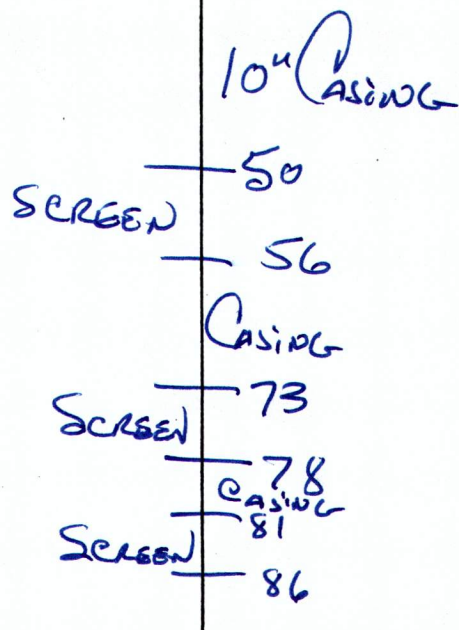 10" Casing
50
Screen
56
Casing
73
Screen
78
Casing
81
Screen
86